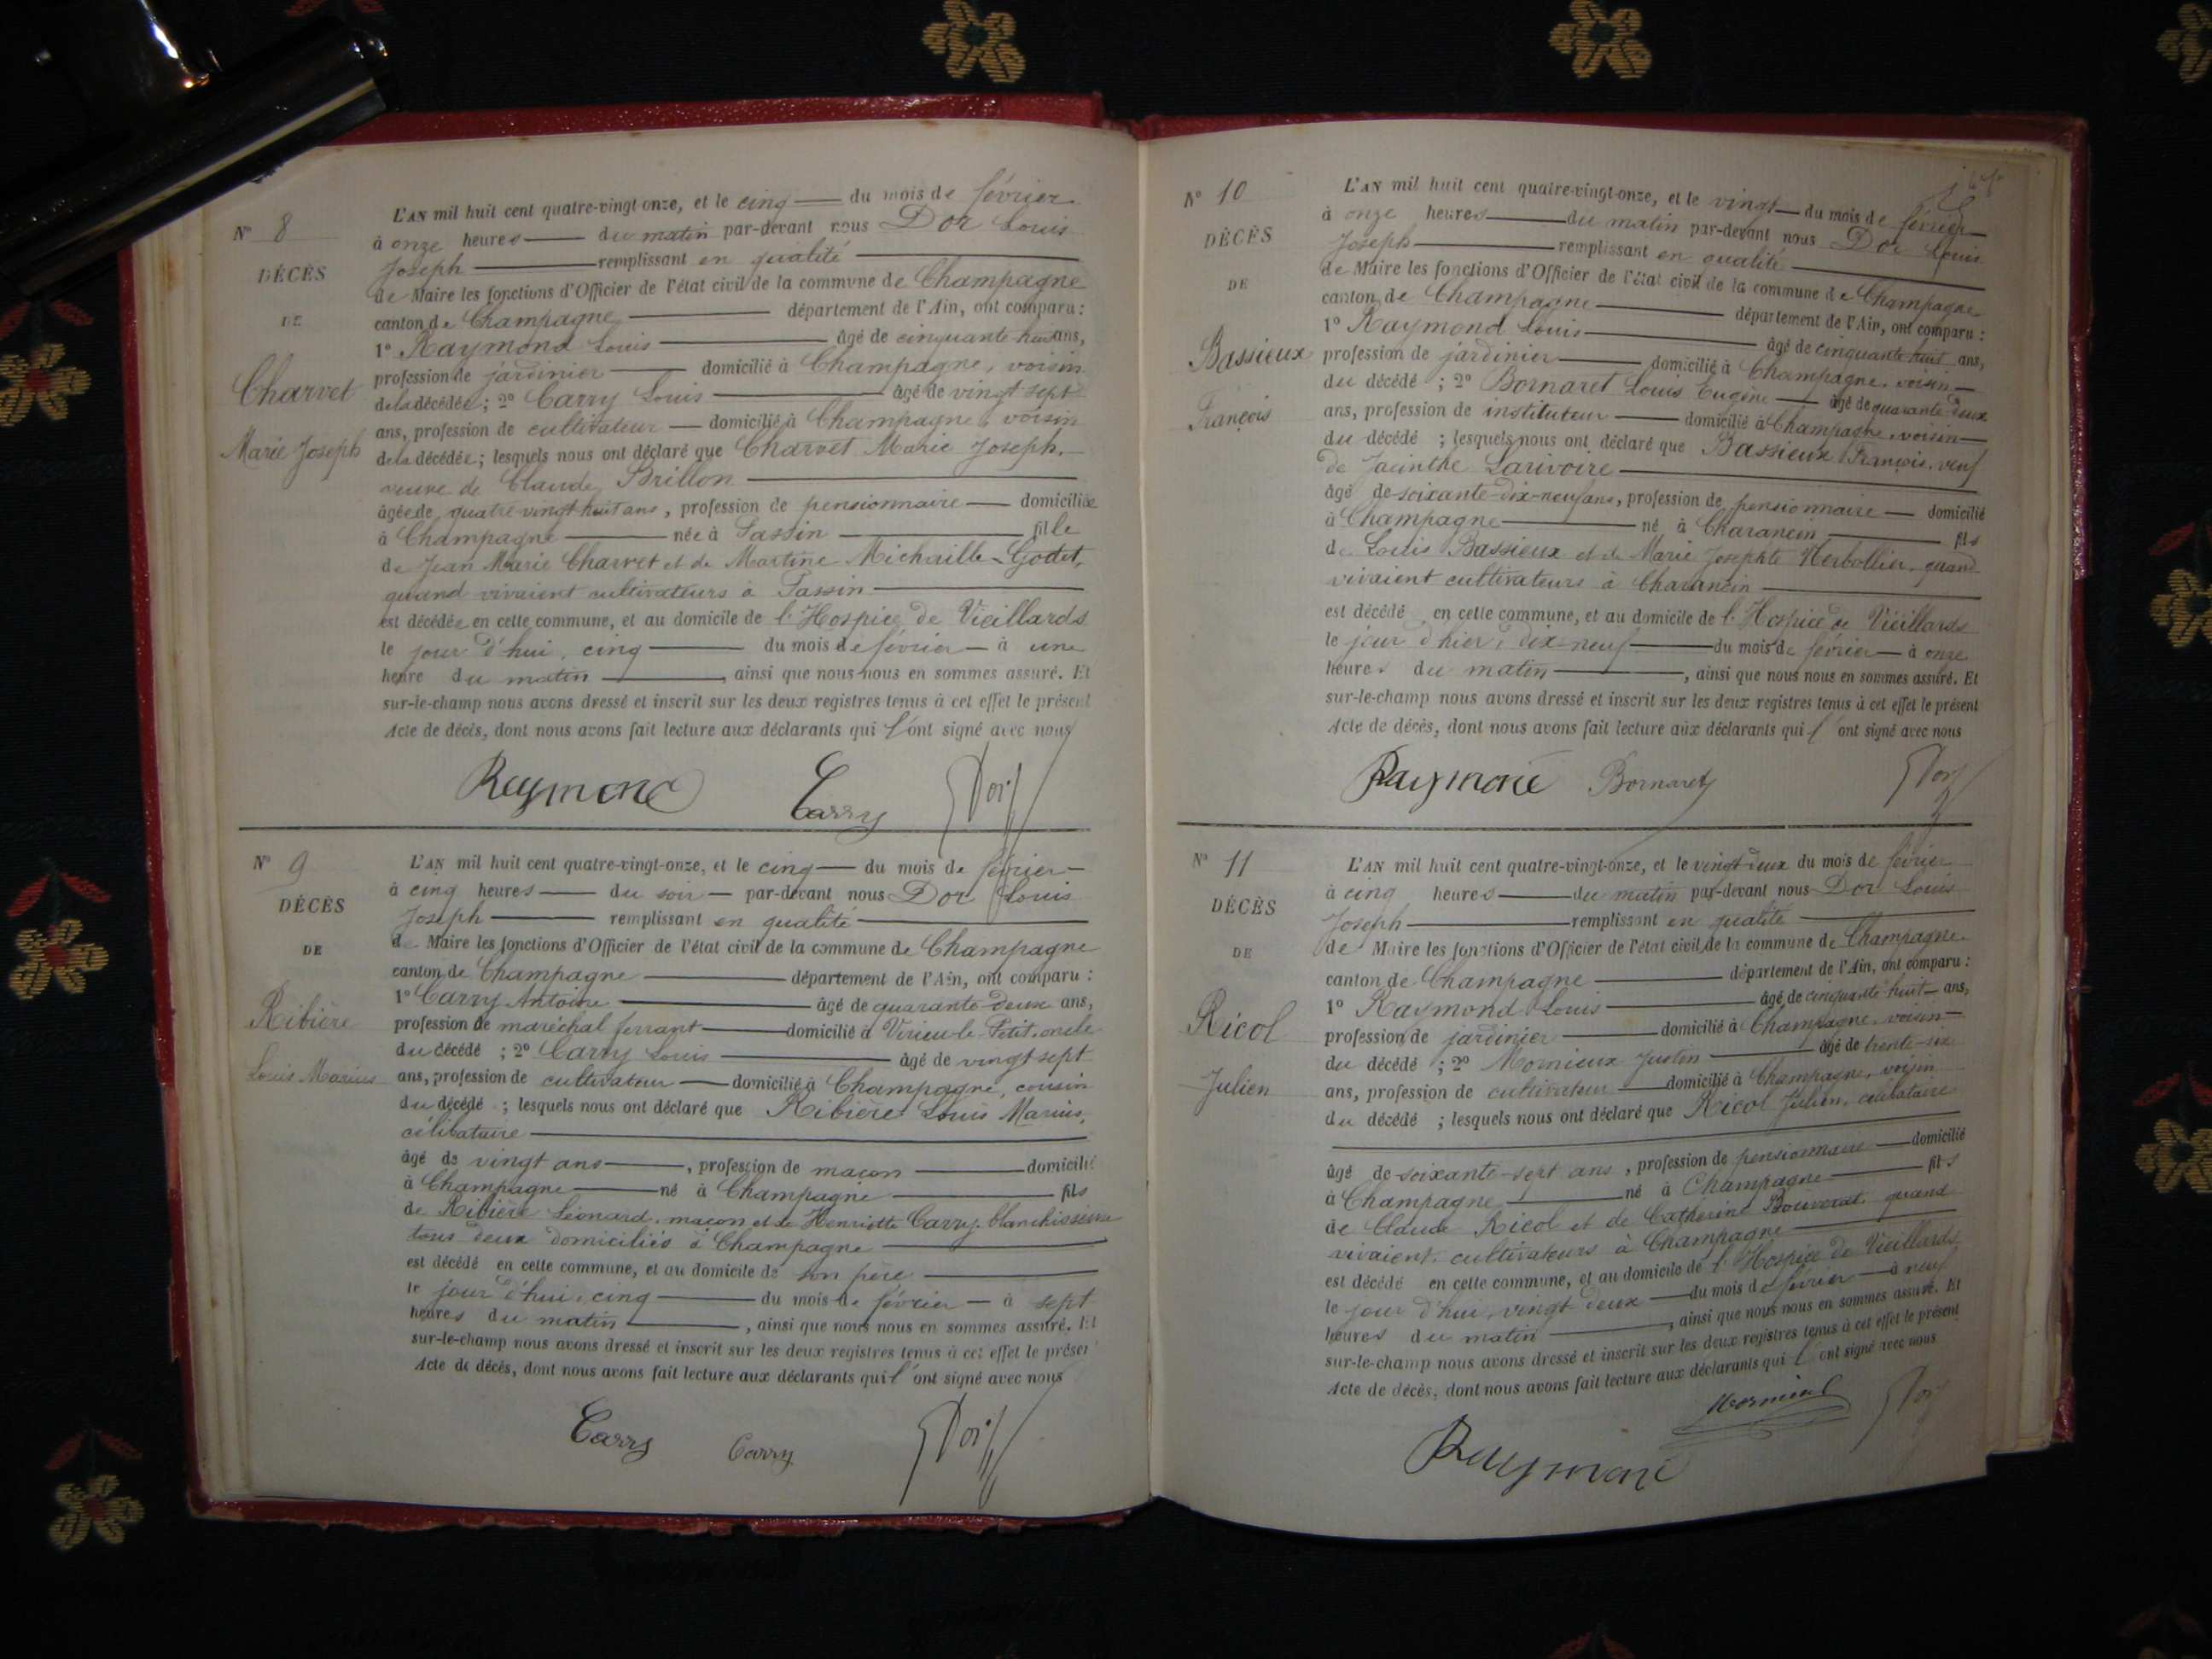 N° 8
DÉCÈS
DE
Charvet
Marie Joseph
L'AN mil huit cent quatre-vingt-onze, et le cinq du mois de février
à onze heures du matin par-devant nous Dor Louis
Joseph remplissant en qualité
de Maire les fonctions d'Officier de l'état civil de la commune de Champagne
canton de Champagne département de l'Ain, ont comparu :
1° Raymond Louis âgé de cinquante huit ans,
profession de jardinier domicilié à Champagne, voisin
de la décédée ; 2° Carry Louis âgé de vingt sept
ans, profession de cultivateur domicilié à Champagne, voisin
de la décédée ; lesquels nous ont déclaré que Charvet Marie Joseph,
veuve de Claude Brillon
âgée de quatre vingt huit ans, profession de pensionnaire domiciliée
à Champagne née à Passin fille
de Jean Marie Charvet et de Martine Michaille-Godet,
quand vivaient cultivateurs à Passin
est décédée en cette commune, et au domicile de l'Hospice de Vieillards
le jour d'hui, cinq du mois de février à une
heure du matin, ainsi que nous nous en sommes assuré. Et
sur-le-champ nous avons dressé et inscrit sur les deux registres tenus à cet effet le présent
Acte de décès, dont nous avons fait lecture aux déclarants qui l'ont signé avec nous
Raymond Carry Dor
N° 9
DÉCÈS
DE
Ribière
Louis Marius
L'AN mil huit cent quatre-vingt-onze, et le cinq du mois de février
à cinq heures du soir par-devant nous Dor Louis
Joseph remplissant en qualité
de Maire les fonctions d'Officier de l'état civil de la commune de Champagne
canton de Champagne département de l'Ain, ont comparu :
1° Carry Antoine âgé de quarante deux ans,
profession de maréchal ferrant domicilié à Virieu-le-Petit, oncle
du décédé ; 2° Carry Louis âgé de vingt sept
ans, profession de cultivateur domicilié à Champagne, cousin
du décédé ; lesquels nous ont déclaré que Ribière Louis Marius,
célibataire
âgé de vingt ans, profession de maçon domicilié
à Champagne né à Champagne fils
de Ribière Léonard, maçon et de Henriette Carry, blanchisseuse
tous deux domiciliés à Champagne
est décédé en cette commune, et au domicile de son père
le jour d'hui, cinq du mois de février à sept
heures du matin, ainsi que nous nous en sommes assuré. Et
sur-le-champ nous avons dressé et inscrit sur les deux registres tenus à cet effet le présent
Acte de décès, dont nous avons fait lecture aux déclarants qui l'ont signé avec nous
Carry Carry Dor
N° 10
DÉCÈS
DE
Bassieux
François
L'AN mil huit cent quatre-vingt-onze, et le vingt du mois de février
à onze heures du matin par-devant nous Dor Louis
Joseph remplissant en qualité
de Maire les fonctions d'Officier de l'état civil de la commune de Champagne
canton de Champagne département de l'Ain, ont comparu :
1° Raymond Louis âgé de cinquante huit ans,
profession de jardinier domicilié à Champagne, voisin
du décédé ; 2° Bornaret Louis Eugène âgé de quarante deux
ans, profession de instituteur domicilié à Champagne, voisin
du décédé ; lesquels nous ont déclaré que Bassieux François, veuf
de Jacinthe Larivoire
âgé de soixante-dix-neuf ans, profession de pensionnaire domicilié
à Champagne né à Charancin fils
de Louis Bassieux et de Marie Josephte Herbollier, quand
vivaient cultivateurs à Charancin
est décédé en cette commune, et au domicile de l'Hospice de Vieillards
le jour d'hier, dix-neuf du mois de février à onze
heures du matin, ainsi que nous nous en sommes assuré. Et
sur-le-champ nous avons dressé et inscrit sur les deux registres tenus à cet effet le présent
Acte de décès, dont nous avons fait lecture aux déclarants qui l'ont signé avec nous
Raymond Bornaret Dor
N° 11
DÉCÈS
DE
Ricol
Julien
L'AN mil huit cent quatre-vingt-onze, et le vingt-deux du mois de février
à cinq heures du matin par-devant nous Dor Louis
Joseph remplissant en qualité
de Maire les fonctions d'Officier de l'état civil de la commune de Champagne
canton de Champagne département de l'Ain, ont comparu :
1° Raymond Louis âgé de cinquante huit ans,
profession de jardinier domicilié à Champagne, voisin
du décédé ; 2° Mornieux Justin âgé de trente-six
ans, profession de cultivateur domicilié à Champagne, voisin
du décédé ; lesquels nous ont déclaré que Ricol Julien, célibataire
âgé de soixante-sept ans, profession de pensionnaire domicilié
à Champagne né à Champagne fils
de Claude Ricol et de Catherine quand
vivaient cultivateurs à Champagne
est décédé en cette commune, et au domicile de l'Hospice de Vieillards
le jour d'hui, vingt deux du mois de février à neuf
heures du matin, ainsi que nous nous en sommes assuré. Et
sur-le-champ nous avons dressé et inscrit sur les deux registres tenus à cet effet le présent
Acte de décès, dont nous avons fait lecture aux déclarants qui l'ont signé avec nous
Raymond Dor